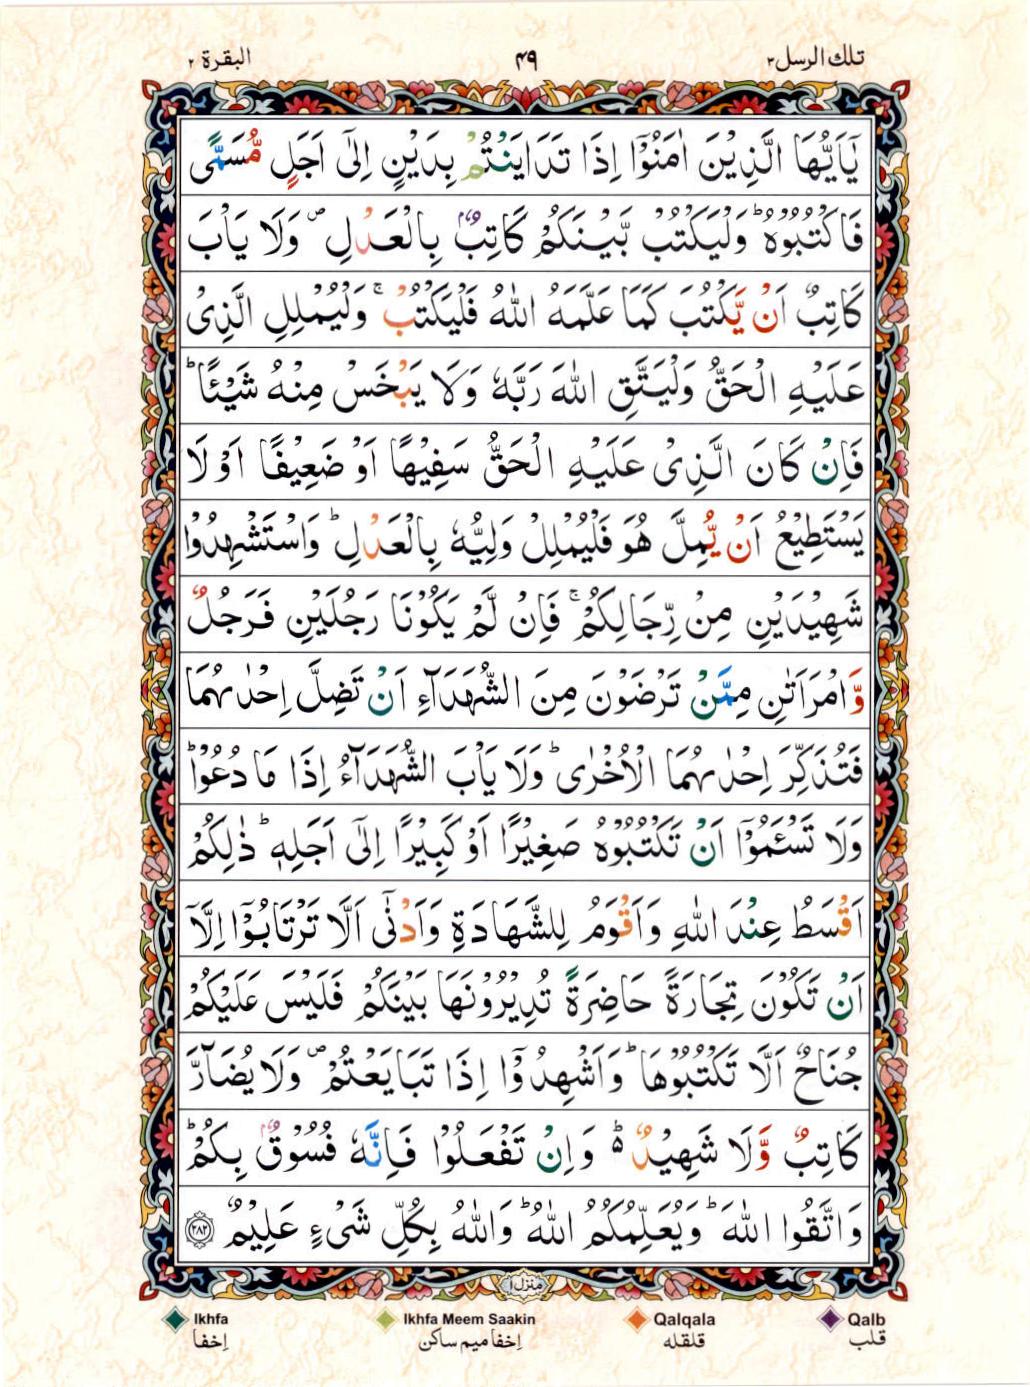 تلك الرسل ۳
۴۹
البقرة ۲
يٰۤاَيُّهَا الَّذِيْنَ اٰمَنُوْۤا اِذَا تَدَايَنْتُمْ بِدَيْنٍ اِلٰۤى اَجَلٍ مُّسَمًّى
فَاكْتُبُوْهُ ؕ وَلْيَكْتُبْ بَّيْنَكُمْ كَاتِبٌۢ بِالْعَدْلِ ۪ وَلَا يَاْبَ
كَاتِبٌ اَنْ يَّكْتُبَ كَمَا عَلَّمَهُ اللّٰهُ فَلْيَكْتُبْ ۚ وَلْيُمْلِلِ الَّذِىْ
عَلَيْهِ الْحَقُّ وَلْيَتَّقِ اللّٰهَ رَبَّهٗ وَلَا يَبْخَسْ مِنْهُ شَيْـًٔا ؕ
فَاِنْ كَانَ الَّذِىْ عَلَيْهِ الْحَقُّ سَفِيْهًا اَوْ ضَعِيْفًا اَوْ لَا
يَسْتَطِيْعُ اَنْ يُّمِلَّ هُوَ فَلْيُمْلِلْ وَلِيُّهٗ بِالْعَدْلِ ؕ وَاسْتَشْهِدُوْا
شَهِيْدَيْنِ مِنْ رِّجَالِكُمْ ۚ فَاِنْ لَّمْ يَكُوْنَا رَجُلَيْنِ فَرَجُلٌ
وَّامْرَاَتٰنِ مِمَّنْ تَرْضَوْنَ مِنَ الشُّهَدَآءِ اَنْ تَضِلَّ اِحْدٰٮهُمَا
فَتُذَكِّرَ اِحْدٰٮهُمَا الْاُخْرٰى ؕ وَلَا يَاْبَ الشُّهَدَآءُ اِذَا مَا دُعُوْا ؕ
وَلَا تَسْـَٔمُوْۤا اَنْ تَكْتُبُوْهُ صَغِيْرًا اَوْ كَبِيْرًا اِلٰۤى اَجَلِهٖ ؕ ذٰلِكُمْ
اَقْسَطُ عِنْدَ اللّٰهِ وَاَقْوَمُ لِلشَّهَادَةِ وَاَدْنٰۤى اَلَّا تَرْتَابُوْۤا اِلَّاۤ
اَنْ تَكُوْنَ تِجَارَةً حَاضِرَةً تُدِيْرُوْنَهَا بَيْنَكُمْ فَلَيْسَ عَلَيْكُمْ
جُنَاحٌ اَلَّا تَكْتُبُوْهَا ؕ وَاَشْهِدُوْۤا اِذَا تَبَايَعْتُمْ ۪ وَلَا يُضَآرَّ
كَاتِبٌ وَّلَا شَهِيْدٌ ؕ۬ وَاِنْ تَفْعَلُوْا فَاِنَّهٗ فُسُوْقٌۢ بِكُمْ ؕ
وَاتَّقُوا اللّٰهَ ؕ وَيُعَلِّمُكُمُ اللّٰهُ ؕ وَاللّٰهُ بِكُلِّ شَىْءٍ عَلِيْمٌ ﴿۲۸۲﴾
منزل ۱
Ikhfa Ikhfa Meem Saakin Qalqala Qalb
إخفا إخفا ميم ساكن قلقله قلب